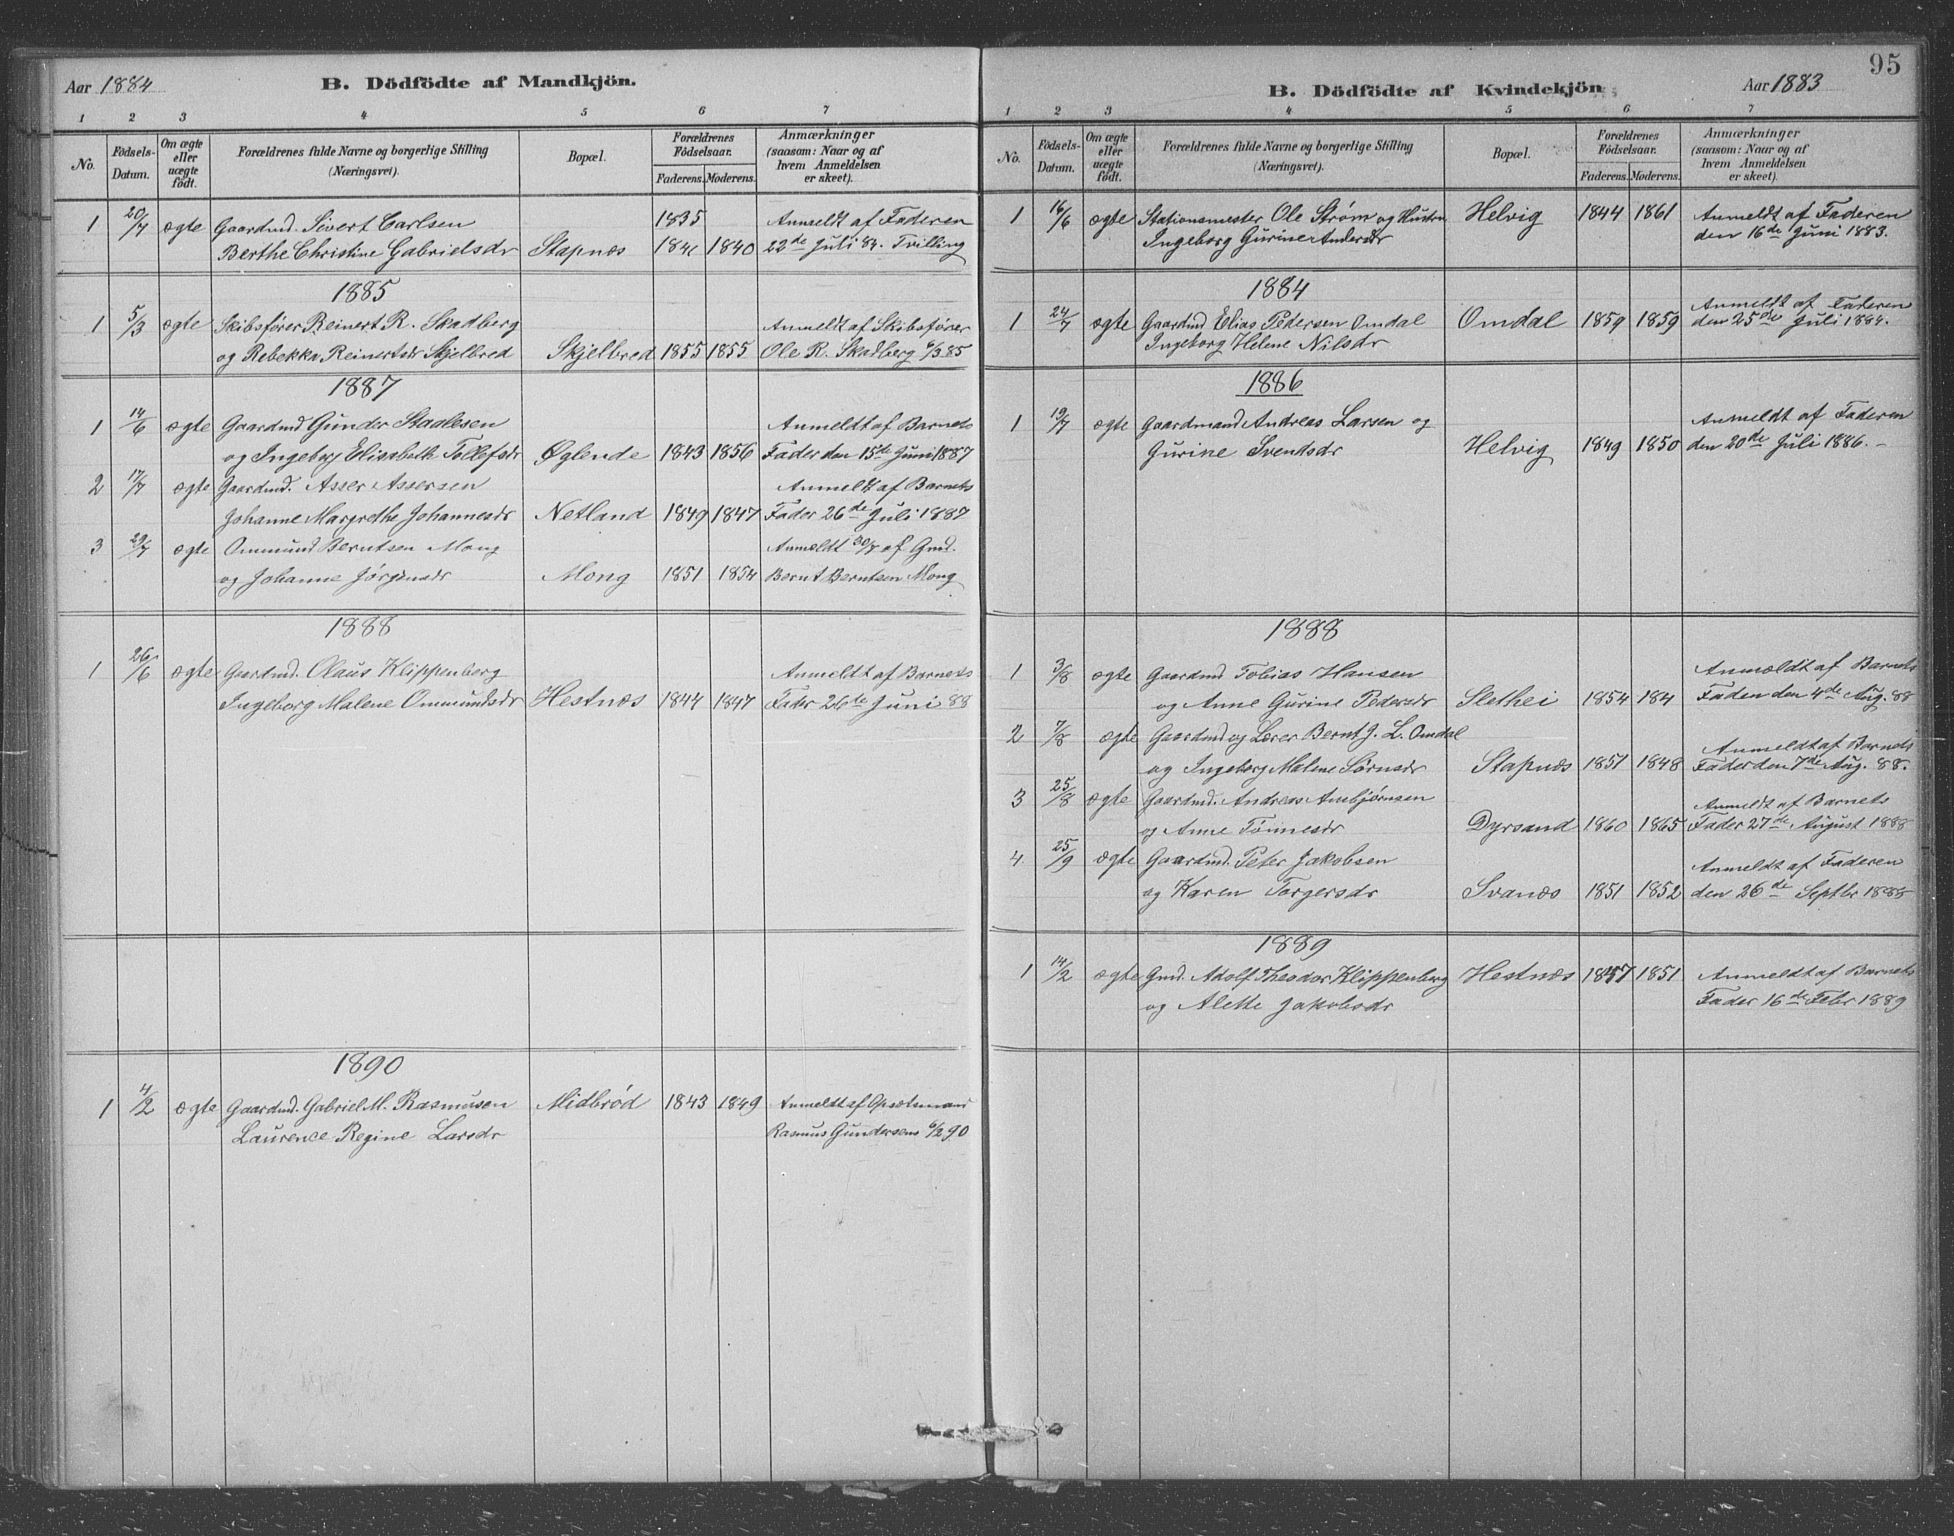 Aar 1884 B. Dödfödte af Mandkjön.
1 2 3 4 5 6 7
No. Födsels-Datum. Om ægte eller uægte födt. Forældrenes fulde Navne og borgerlige Stilling (Næringsvei). Bopæl. Forældrenes Födselsaar. Faderens. Moderens. Anmærkninger (saasom: Naar og af hvem Anmeldelsen er skeet).
1 20/7 ægte Gaardmd. Sivert Carlsen 1835 Anmeldt af Faderen
Berthe Christine Gabrielsdr Stapnæs 1840 22de Juli 84. Tvilling
1885
1 5/3 ægte Skibsfører Reinert R. Skadberg Anmeldt af Skibsfører
og Rebekka Reinertsdr Skjelbred Skjelbred 1855 1855 Ole R. Skadberg 6/3 85
1887
1 14/6 ægte Gaardmd Gunder Staalesen Anmeldt af Barnets
og Ingeborg Elisabeth Tollefsdr Øglende 1843 1856 Fader den 15de Juni 1887
2 17/7 ægte Gaardmd. Asser Assersen Anmeldt af Barnets
Johanne Margrethe Johannesdr Netland 1849 1847 Fader 26de Juli 1887
3 29/7 ægte Ommund Berntsen Mong Anmældt 30/7 af Gmd.
og Johanne Jørgensdr Mong 1851 1854 Bernt Berntsen Mong
1888
1 26/6 ægte Gaardmd. Olaus Klippenberg Anmeldt af Barnets
Ingeborg Malene Ommundsdr Hestnæs 1844 1847 Fader 26de Juni 88
1890
1 4/2 ægte Gaardmd. Gabriel M. Rasmusen Midbrød 1843 1849 Anmeldt af Opsætsmand
Laurence Regine Larsdr Rasmus Gundersens 6/2 90
95
B. Dödfödte af Kvindekjön Aar 1883
1 2 3 4 5 6 7
No. Födsels-Datum. Om ægte eller uægte födt. Forældrenes fulde Navne og borgerlige Stilling (Næringsvei). Bopæl. Forældrenes Födselsaar. Faderens. Moderens. Anmærkninger (saasom: Naar og af hvem Anmeldelsen er skeet).
1 16/6 ægte Stationsmester Ole Strøm og Hustru Helvig 1844 1861 Anmeldt af Faderen
Ingeborg Gurine Andersdr den 16de Juni 1883.
1884
1 24/7 ægte Gaardmd Elias Pedersen Omdal Omdal 1859 1859 Anmeldt af Faderen
Ingeborg Helene Nilsdr den 25de Juli 1884.
1886
1 19/7 ægte Gaardmand Andreas Larsen og Anmeldt af Faderen
Gurine Svendsdr Helvig 1849 1850 den 20de Juli 1886.-
1888
1 3/8 ægte Gaardmd Tobias Hansen Anmældt af Barnets
og Anne Gurine Pedersdr Slethei 1854 184 Faden den 4de Aug. 88
2 7/8 ægte Gaardmd og Lærer Bernt J. L. Omdal Anmeldt af Barnets
og Ingeborg Malene Sørnsdr Stapnæs 1851 1848 Fader den 7de Aug. 88.
3 25/8 ægte Gaardmd. Andreas Ambjørnsen Anmeldt af Barnets
og Anne Tønnesdr Dyrsand 1860 1865 Fader 27de August 1888
4 25/9 ægte Gaardmd. Peter Jakobsen Anmeldt af Faderen
og Karen Torgersdr Svanæs 1851 1852 den 26de Septbr 1888
1889
1 14/2 ægte Gmd. Adolf Theodor Klippenberg Hestnæs 1857 1851 Anmeldt af Barnets
og Alette Jakobsdr Fader 16de Febr 1889